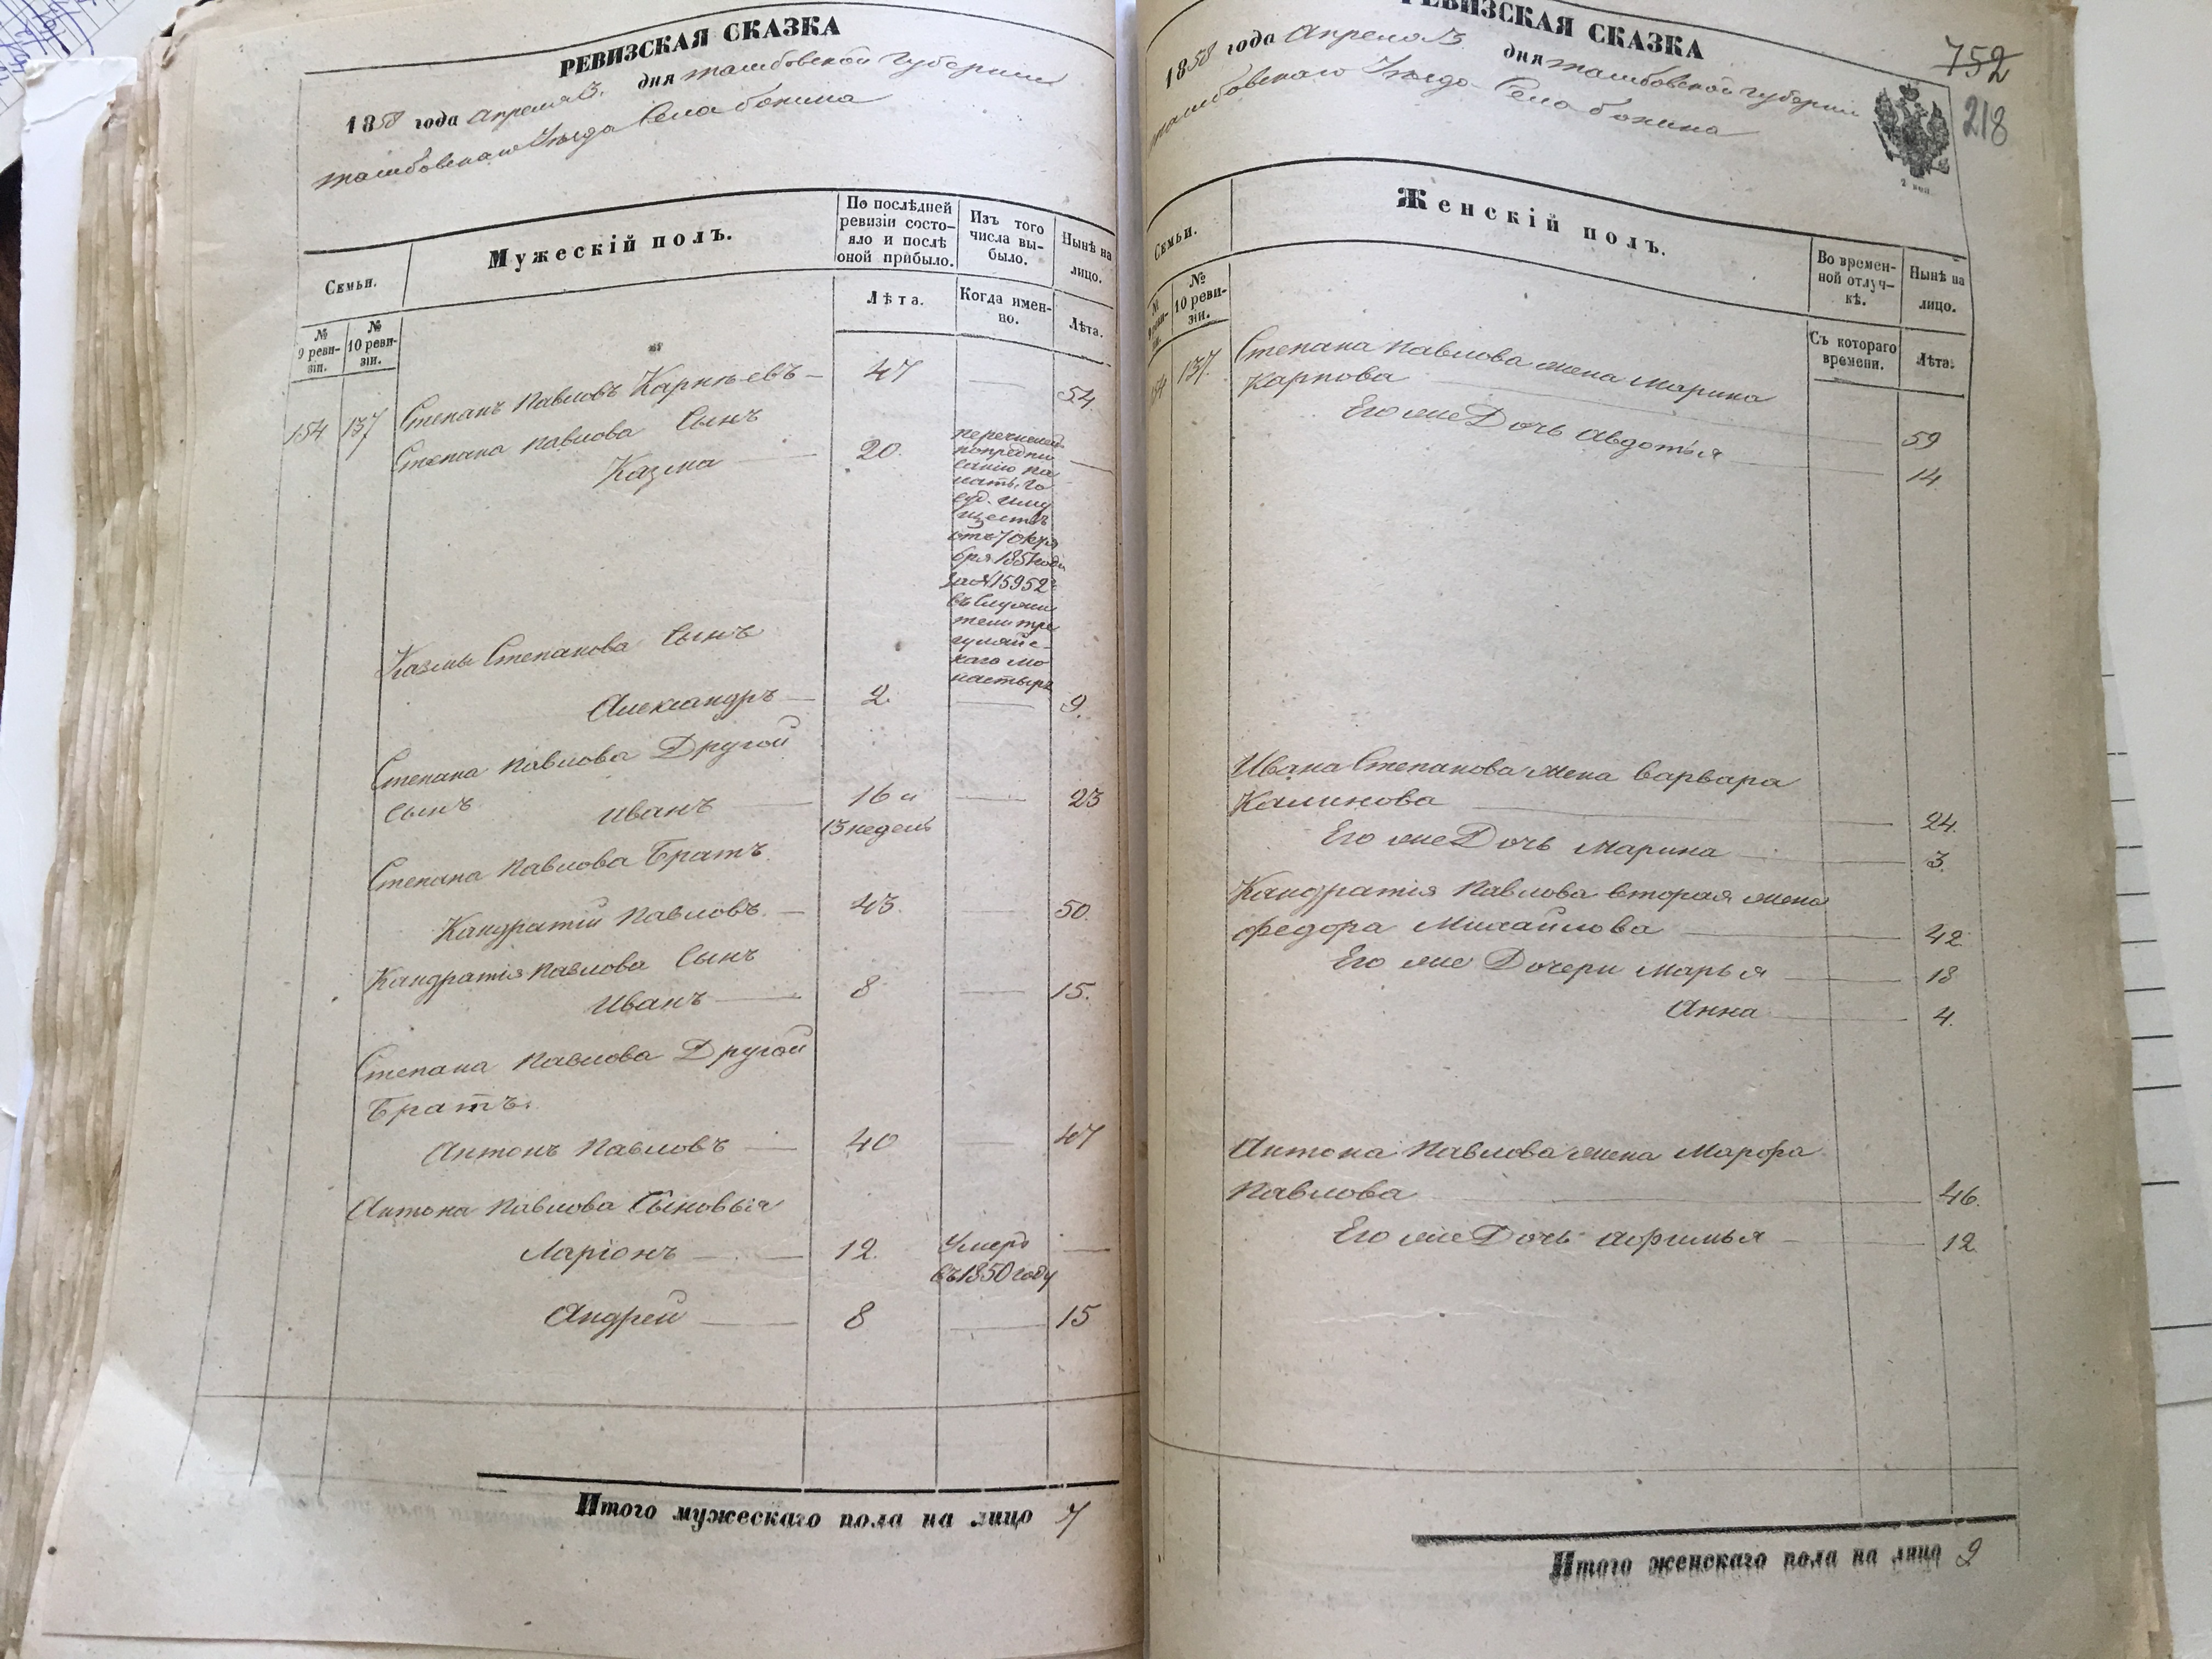 РЕВИЗСКАЯ СКАЗКА
1858 года Апреля 3. дня тамбовской Губернии
тамбовскаго Уезда Села бокина
Семьи.
Мужескій полъ.
По послѣдней ревизіи состояло и послѣ оной прибыло.
Изъ того числа выбыло.
Нынѣ на лицо.
№ 9 ревизіи.
№ 10 ревизіи.
Лѣта.
Когда именно.
Лѣта.
154 137 Степанъ Павловъ Карнѣевъ 47 54
Степана павлова Сынъ
Казма 20.
перечислен
попредпи
санію па
латы. Го
суд. иму
ществъ
отъ 7 октя
бря 1857 года
за № 15952
въ служи
тели тре
гуляйс-
каго мо
настыря
Казмы Степанова Сынъ
Александръ 2. 9.
Степана Павлова Другой
сынъ иванъ 16 и 23
13 недель
Степана Павлова Братъ
Кандратій Павловъ 43. 50.
Кандратія Павлова Сынъ
Иванъ 8 15.
Степана Павлова Другой
Братъ.
Антонъ Павловъ 40 47
Антона Павлова Сыновья
Ларіонъ 12. Умеръ
въ 1850 году
Андрей 8 15
Итого мужескаго пола на лицо 7
РЕВИЗСКАЯ СКАЗКА
752
218
1858 года Апреля 3. дня тамбовской губернии
тамбовскаго Уезда Села бокина
Семьи.
Женскій полъ.
Во временной отлучкѣ.
Нынѣ на лицо.
№ 10 ревизіи.
Съ котораго времени.
Лѣта.
154 137. Степана Павлова жена Марина
Карпова 59
Его же Дочь Авдотья 14
Ивана Степанова жена варвара
Калинова 24.
Его же Дочь Марина 3.
Кандратія Павлова вторая жена
федора Михайлова 42
Его же Дочери Марья 18
Анна 4.
Антона Павлова жена Марфа
Павлова 46.
Его же Дочь афимья 12.
Итого женскаго пола на лицо 9